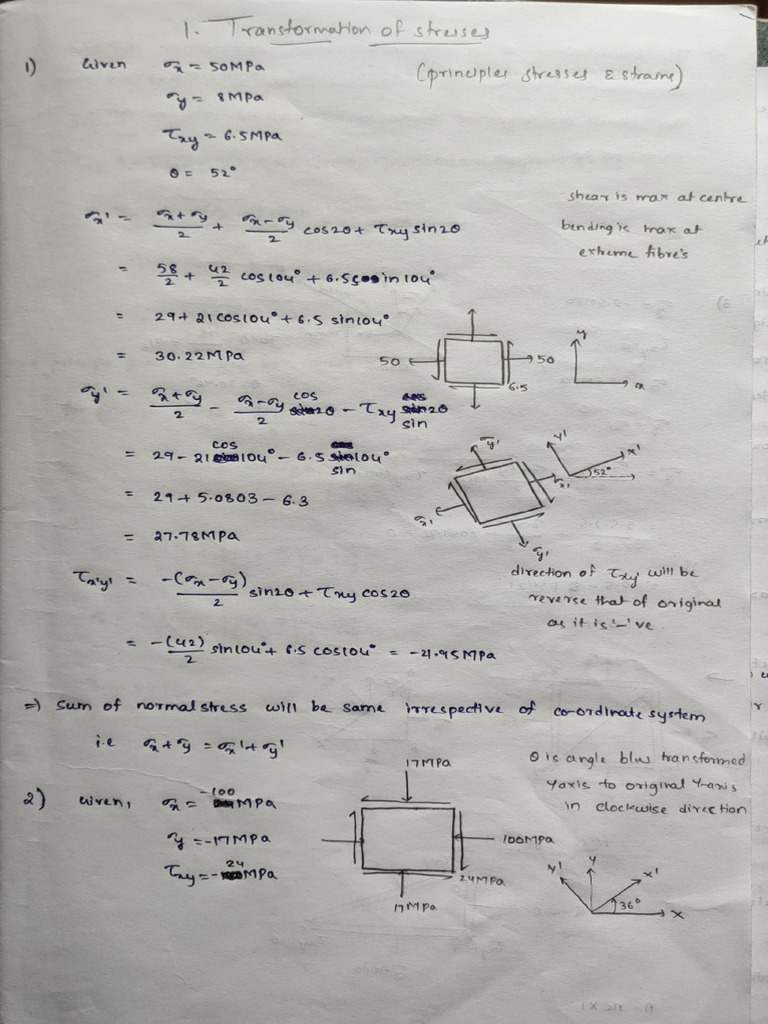 1. Transformation of stresses
1) Given σx = 50MPa (principles stresses & strains)
σy = 8MPa
τxy = 6.5MPa
θ = 52°
shear is max at centre
bending is max at
extreme fibre's
σx' = σx+σy/2 + σx-σy/2 cos2θ + τxy sin2θ
= 58/2 + 42/2 cos104° + 6.5 sin104°
= 29+21cos104°+6.5 sin104°
= 30.22MPa
50 50 y x
6.5
σy' = σx+σy/2 - σx-σy/2 cos2θ - τxy sin2θ
= 29-21cos104° - 6.5 sin104°
= 29+5.0803-6.3
= 27.78MPa
σy' y' x'
52°
σx' σx'
σy'
τx'y' = -(σx-σy)/2 sin2θ + τxy cos2θ
= -(42)/2 sin104°+ 6.5 cos104° = -21.95MPa
direction of τxy' will be
reverse that of original
as it is '-'ve
=) Sum of normal stress will be same irrespective of co-ordinate system
i.e σx+σy = σx'+σy'
θ is angle b/w transformed
yaxis to original Y-axis
in clockwise direction
2) Given, σx = -100MPa
σy = -17MPa
τxy = -24MPa
17MPa
100MPa
24MPa
17MPa
y' y x'
36° x